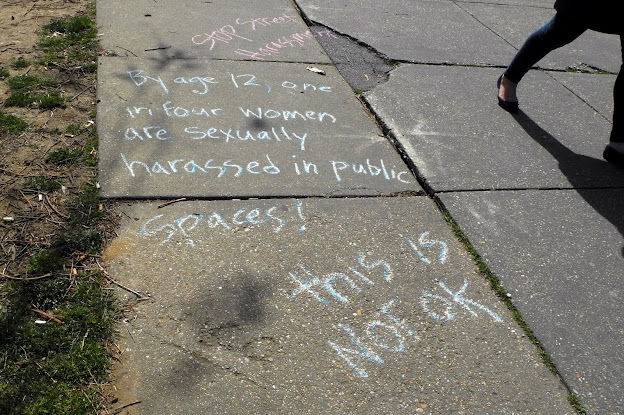 Stop Street
Harassment
By age 12, one
in four women
are sexually
harassed in public
spaces!
this is
Not ok